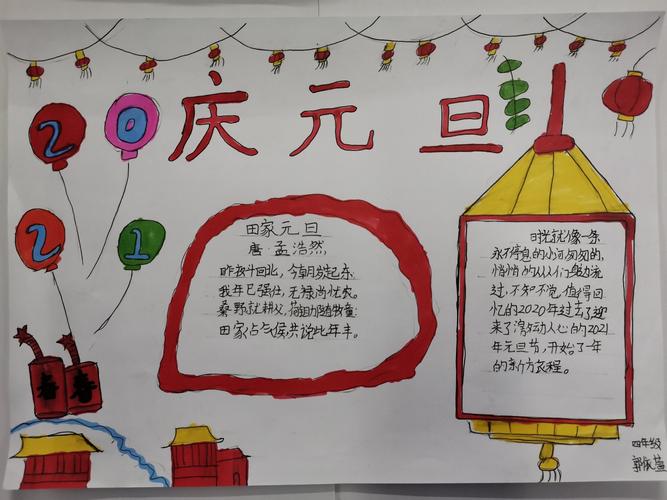 庆元旦
20
21
田家元旦
唐·孟浩然
昨夜斗回北,今朝岁起东
我年已强仕,无禄尚忧农。
桑野就耕父,荷锄随牧童
田家占气候共说此年丰。
时光就像一条
永不停息的小河匆匆的,
悄悄的从人们身边流
过,不知不觉,值得回
忆的2020年过去了迎
来了激动人心的2021
年元旦节,开始了一年
的新的旅程。
春 春
四年级
郭